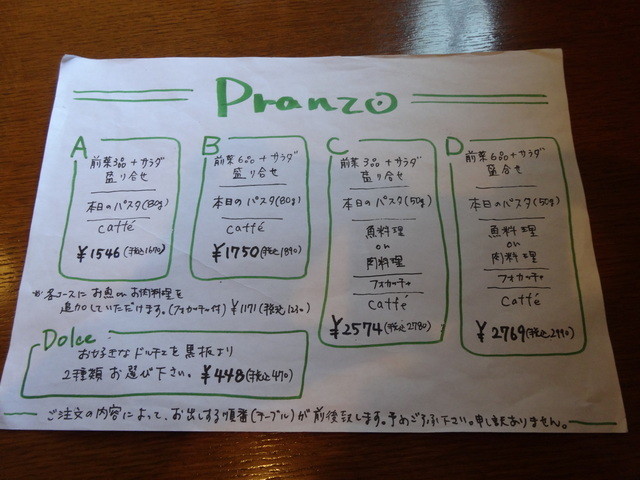 Pranzo
A
前菜3品+サラダ
盛り合せ
本日のパスタ(80g)
Caffé
¥1546(税込1670)
B
前菜6品+サラダ
盛り合せ
本日のパスタ(80g)
Caffé
¥1750(税込1890)
C
前菜3品+サラダ
盛り合せ
本日のパスタ(50g)
魚料理
or
肉料理
フォカッチャ
Caffé
¥2574(税込2780)
D
前菜6品+サラダ
盛り合せ
本日のパスタ(50g)
魚料理
or
肉料理
フォカッチャ
Caffé
¥2769(税込2990)
※各コースにお魚orお肉料理を
追加していただけます。(フォカッチャ付)¥1171(税込1230)
Dolce
お好きなドルチェを黒板より
2種類お選び下さい。¥448(税込470)
ご注文の内容によって、お出しする順番(テーブル)が前後致します。予めご了承下さい。申し訳ありません。